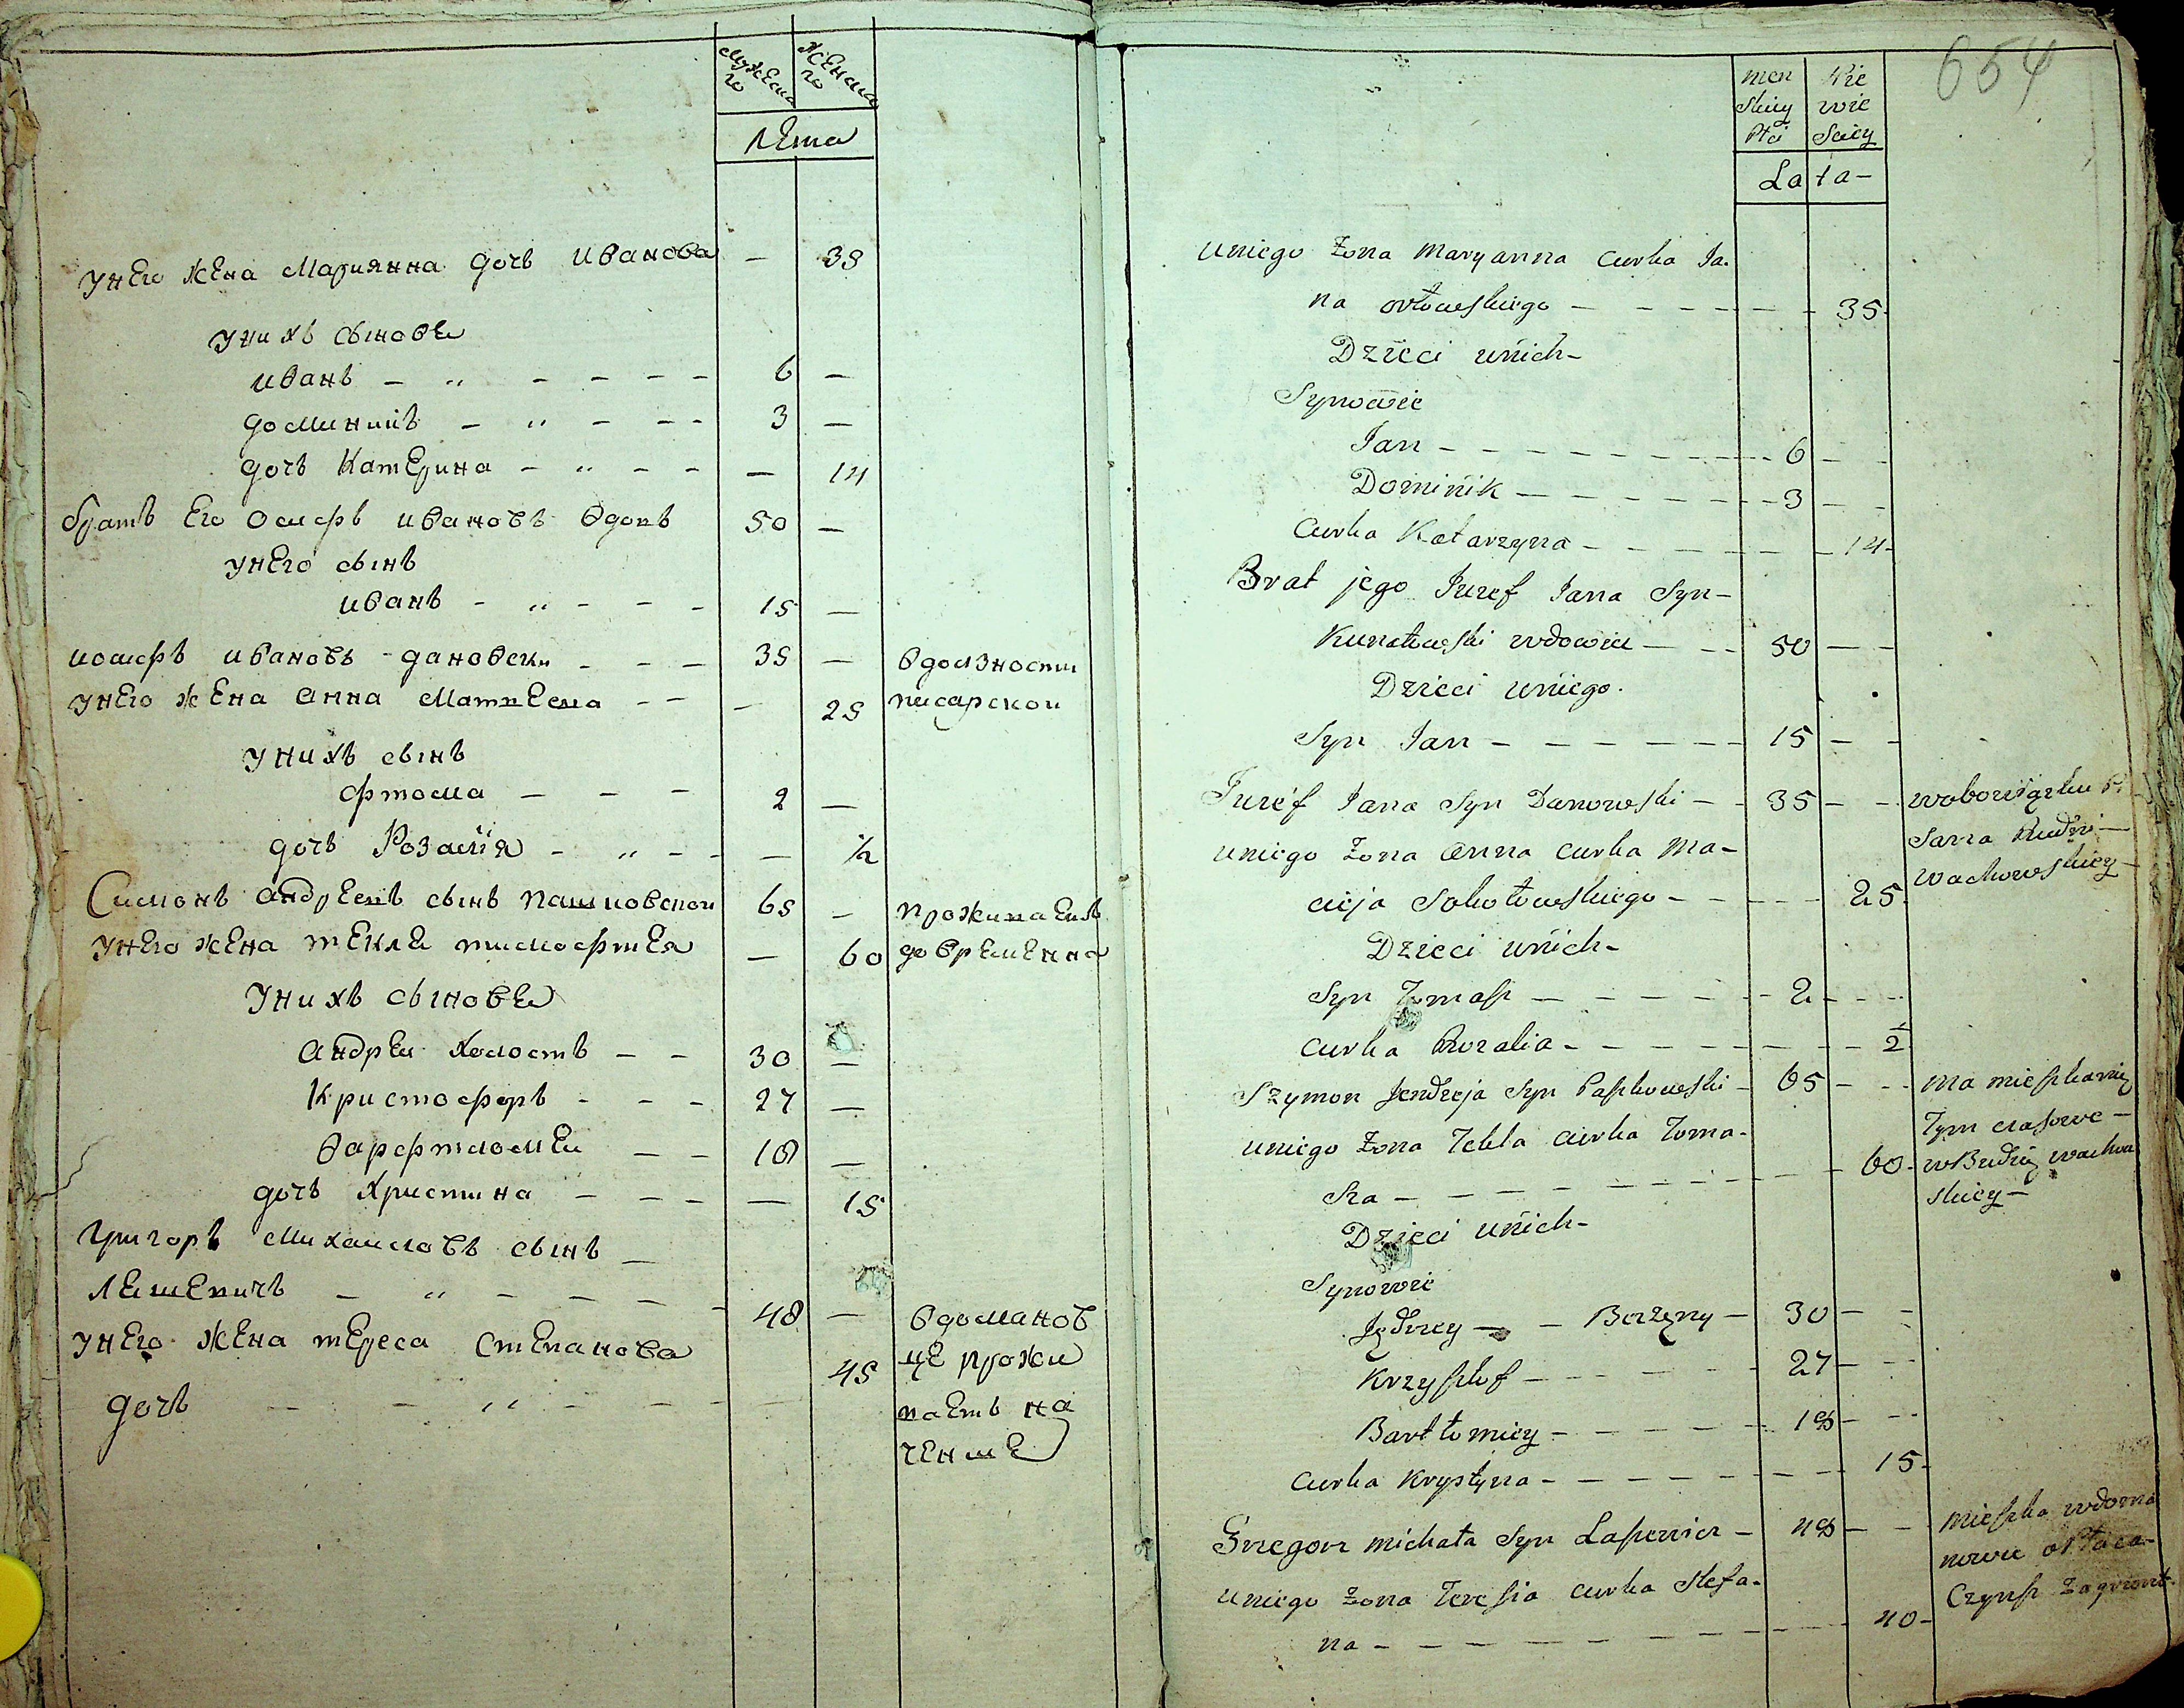 мужеска го
женска го
Лета
у него жена Марьянна дочь Иванова — 35
у них сынове
иванъ — „ — — — — 6 —
доминикъ — „ — — — 3 —
дочь Катерина — „ — — — 14
братъ Его осифъ ивановъ вдовъ 50 —
у него сынъ
иванъ — „ — — — 15 —
иосифъ ивановъ дановски — — — 35 — в должности
у него жена анна Матвеева — — — 25 писарской
у нихъ сынъ
фтома — — — 2 —
дочь Розалия — „ — — — ½
Симонъ андреевъ сынъ пашковской 65 — проживаетъ
у него жена текля тимофтея — 60 до времЕнна
у нихъ сынове
андреи холостъ — — 30 —
Кристофоръ — — — 27 —
варфтоломеи — — 18 —
дочь Христина — — — — 15
Григоръ михаиловъ сынъ —
Лешевичъ — „ — — — — 48 — в доманов
у него жена тереса Степанова 45 це прожи
дочь — — „ — — — ваетъ на
ченше
654
men skiey Płci
Nie wie sciey
Lata —
u niego Żona Maryanna curka Ja-
na orłowskiego — — — — — 35
Dzieci u nich —
Synowie
Jan — — — — — — — 6 — —
Dominik — — — — — — 3 — —
Curka Katarzyna — — — — — 14
Brat jego Juzef Jana Syn —
Kunatowski wdowiec — — 50 — —
Dzieci u niego.
Syn Jan — — — — — — 15 — —
Juzef Jana Syn Danowski — — 35 — — w obowiązku Pi
u niego Żona Anna curka Ma- sarza Rudni —
cieja Sokołowskiego — — — — 25 Wachowskiey —
Dzieci u nich —
Syn Tomasz — — — — — 2 — — —
curka Rozalia — — — — — — — ½
Szymon Jendrzeja Syn Paszkowski — 65 — — ma mieszkanie
u niego Żona Tekla curka Toma- Tym czasowe —
sza — — — — — — — — 60 w Rudni wachow
skiey —
Dzieci u nich —
Synowie
Jędrzey — — Bezżenny — 30 — —
Krzysztof — — — — — 27 — —
Bartłomiey — — — — — 18 — —
curka Krystyna — — — — — — — 15
Grzegorz Michała Syn Laszewicz — 48 — — Mieszka w doma
nowie opłaca
u niego Żona Teresia curka Stefa- Czynsz
na — — — — — — — — 40 —